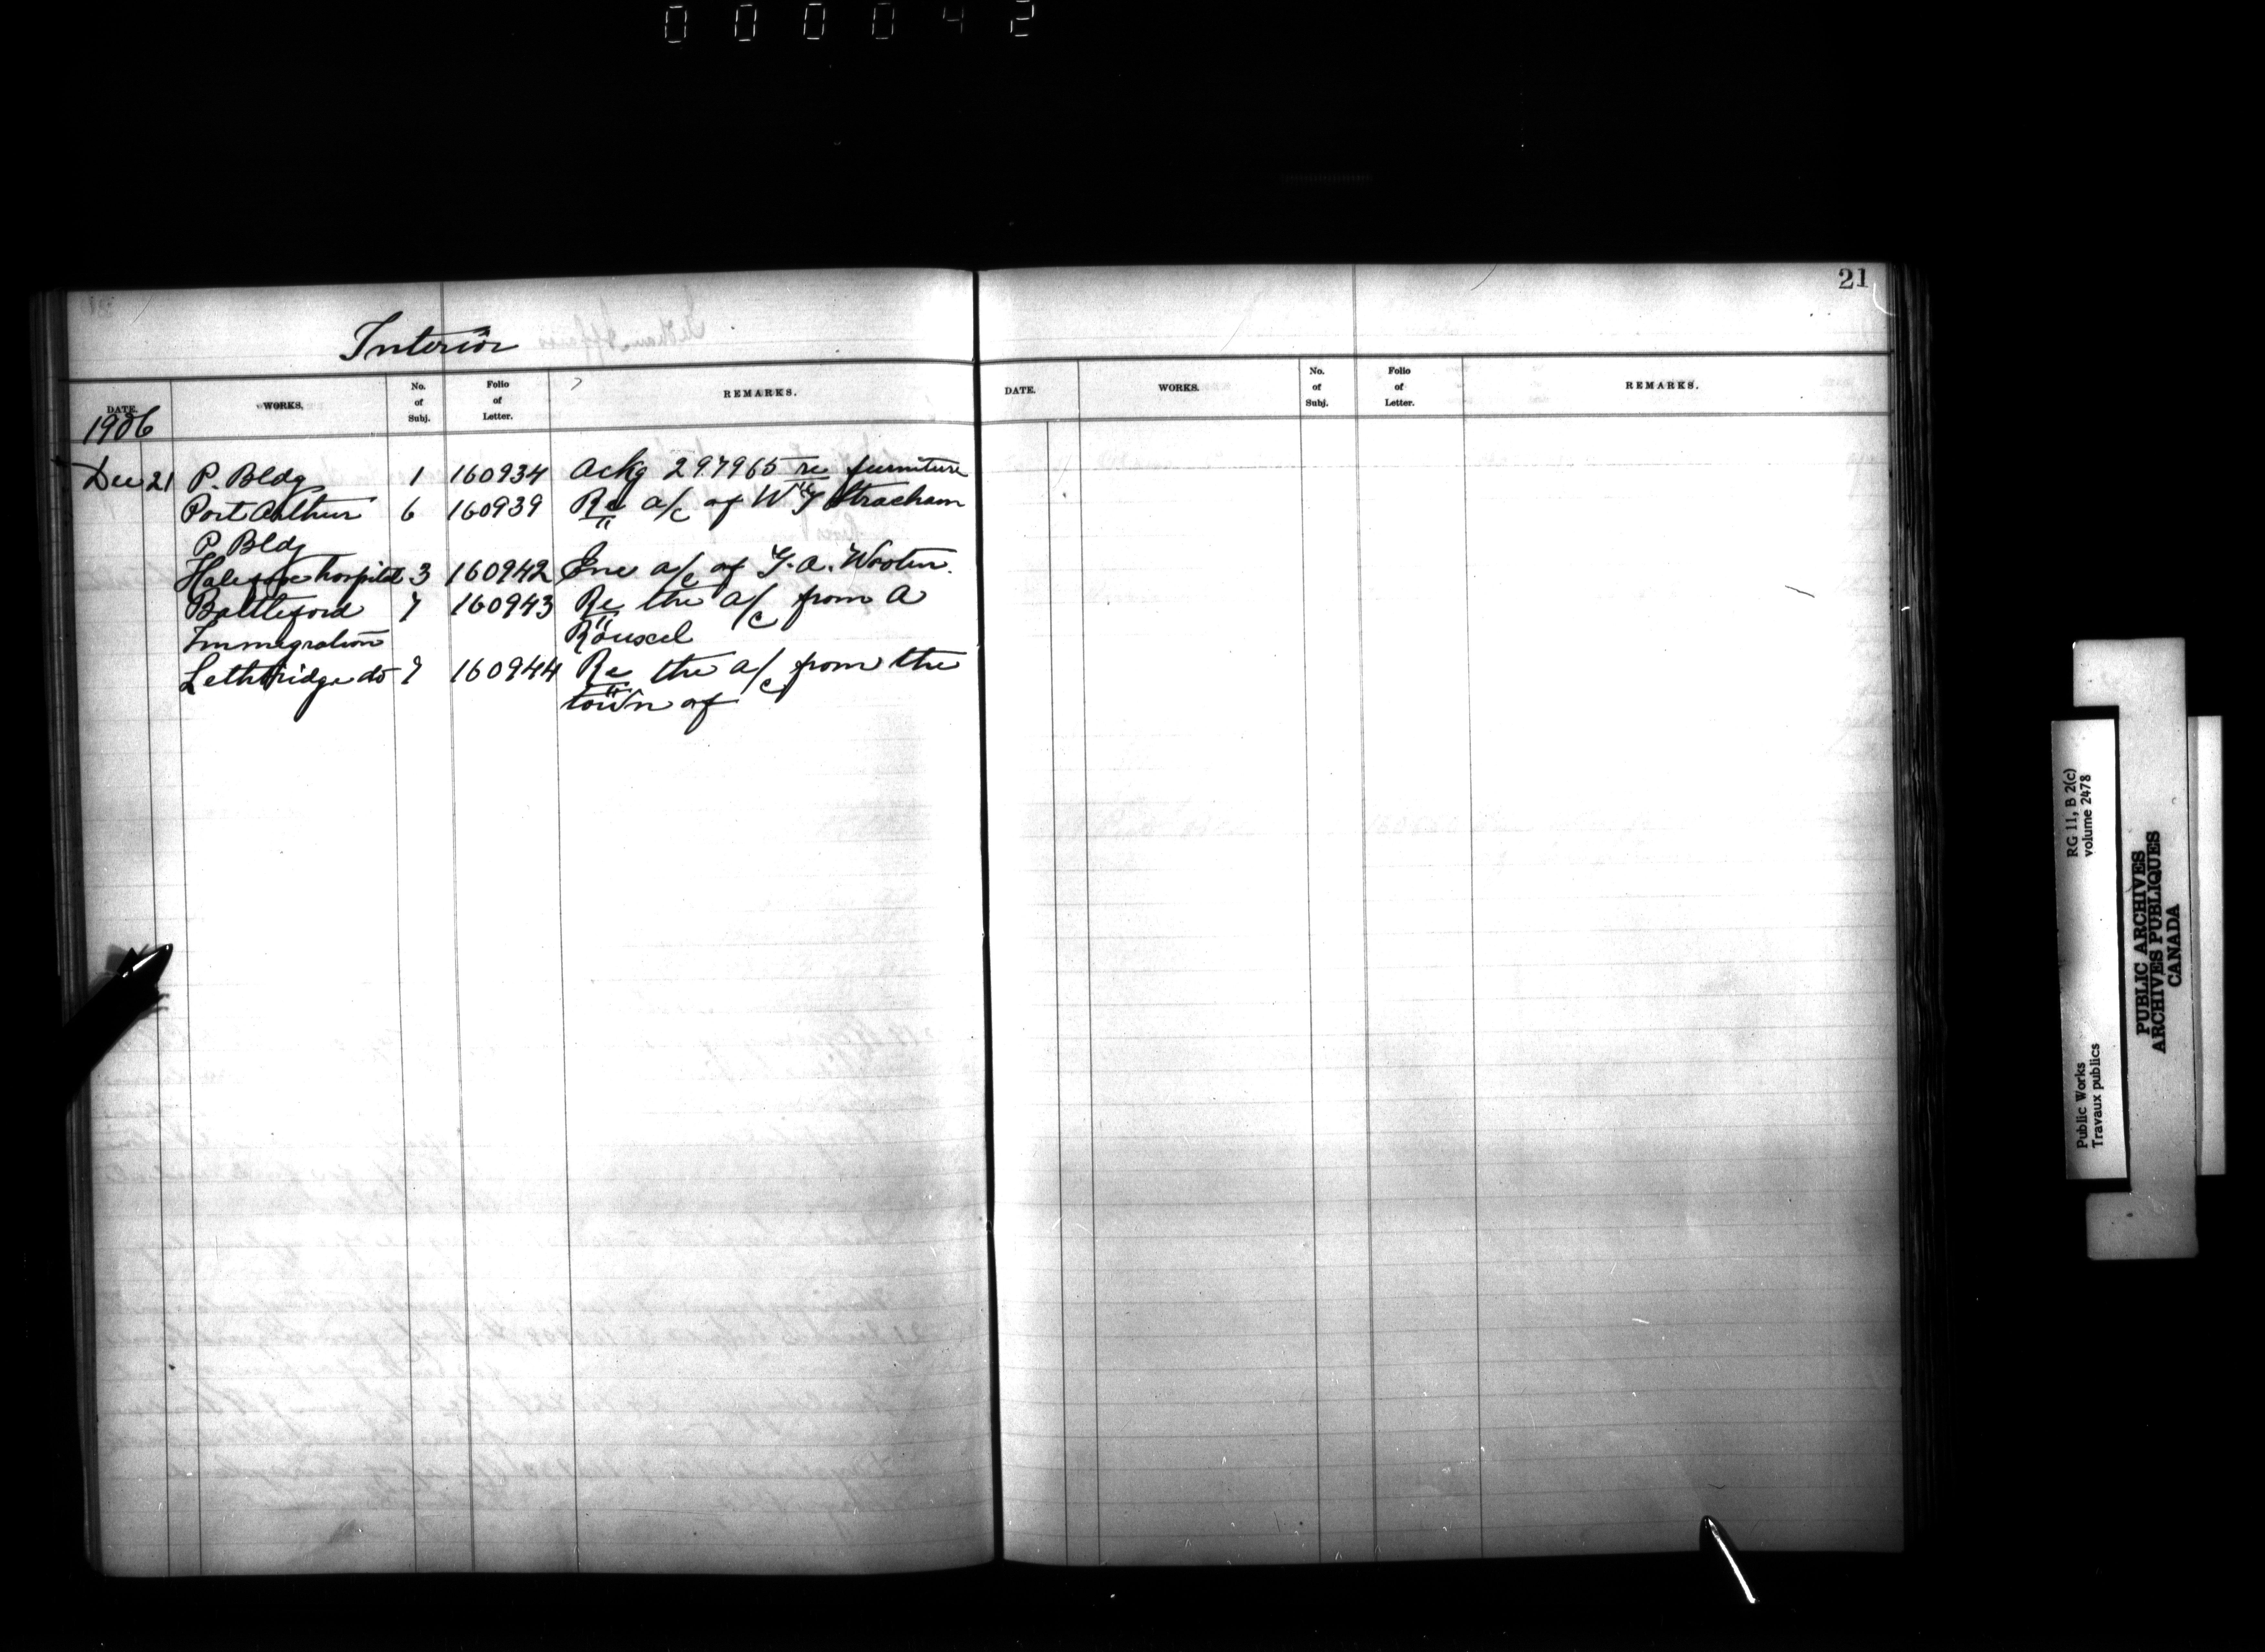 000042
21
Interior
DATE. WORKS. No. of Subj. Folio of Letter. REMARKS.
DATE. WORKS. No. of Subj. Folio of Letter. REMARKS.
1906
Dec 21 P. Bldg 1 160934 Ackg 297965 re furniture
Port Arthur 6 160939 Re a/c of W G Stracham
P Bldg
Halifax hospital 3 160942 Inc a/c of G. A. Wooten.
Battleford 7 160943 Re the a/c from A
Immigration Rouxel
Lethbridge do 7 160944 Re the a/c from the
town of
Public Works
Travaux publics
RG 11, B 2(c)
volume 2478
PUBLIC ARCHIVES
ARCHIVES PUBLIQUES
CANADA